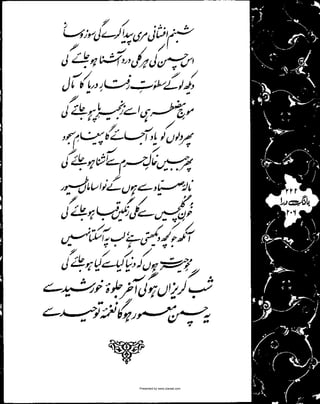 شبنم افشانی مری پیدا کرے گی سوز و ساز
اس چمن کی ہر کلی درد آشنا ہو جائے گی
دیکھ لو گے سطوتِ رفتارِ دریا کا مآل
موجِ مضطر ہی اسے زنجیرِ پا ہو جائے گی
پھر دلوں کو یاد آ جائے گا پیغامِ سجود
پھر جبیں خاکِ حرم سے آشنا ہو جائے گی
نالۂ صیاد سے ہوں گے نوا ساماں طیور
خونِ گلچیں سے کلی رنگیں قبا ہو جائے گی
آنکھ جو کچھ دیکھتی ہے لب پہ آ سکتا نہیں
محوِ حیرت ہوں کہ دنیا کیا سے کیا ہو جائے گی
شب گریزاں ہو گی آخر جلوۂ خورشید سے
یہ چمن معمور ہو گا نغمۂ توحید سے
۲۲۲
بانگِ درا
۲۰۶
Presented by www.ziaraat.com